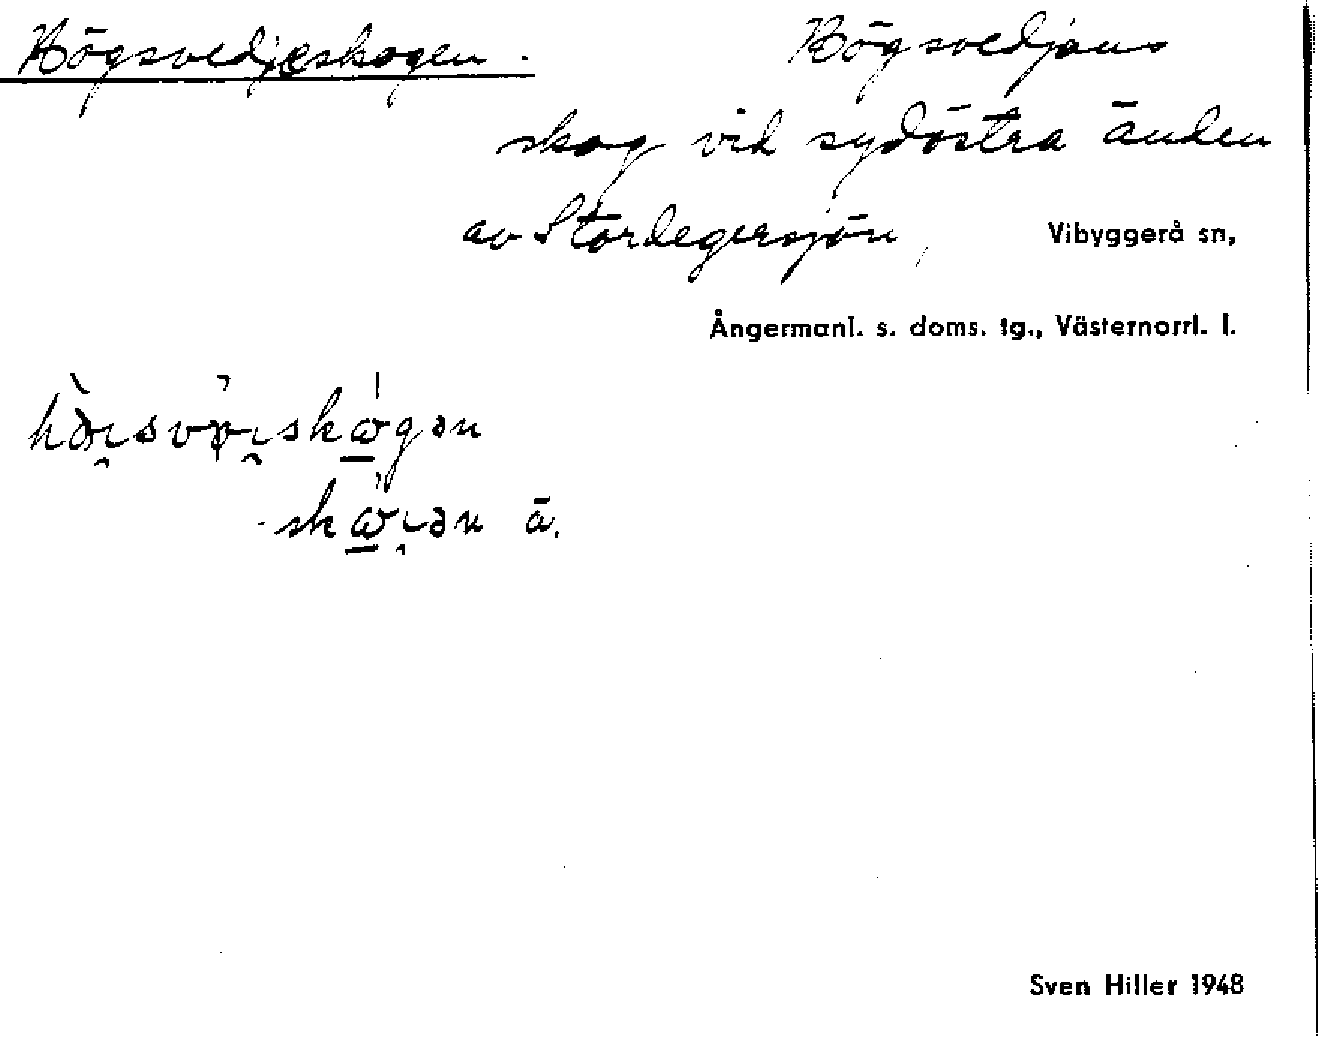 Högsvedjeskogen. Högsvedjans
skog vid sydöstra änden
av Storlegersjön, Vibyggerå sn,
Ångermanl. s. doms. tg., Västernorrl. l.
ä.
Sven Hiller 1948